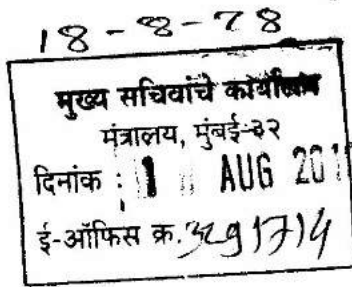 18-8-78
मुख्य सचिवांचे कार्यालय
मंत्रालय, मुंबई-३२
दिनांक : 1 AUG 201
ई-ऑफिस क्र.